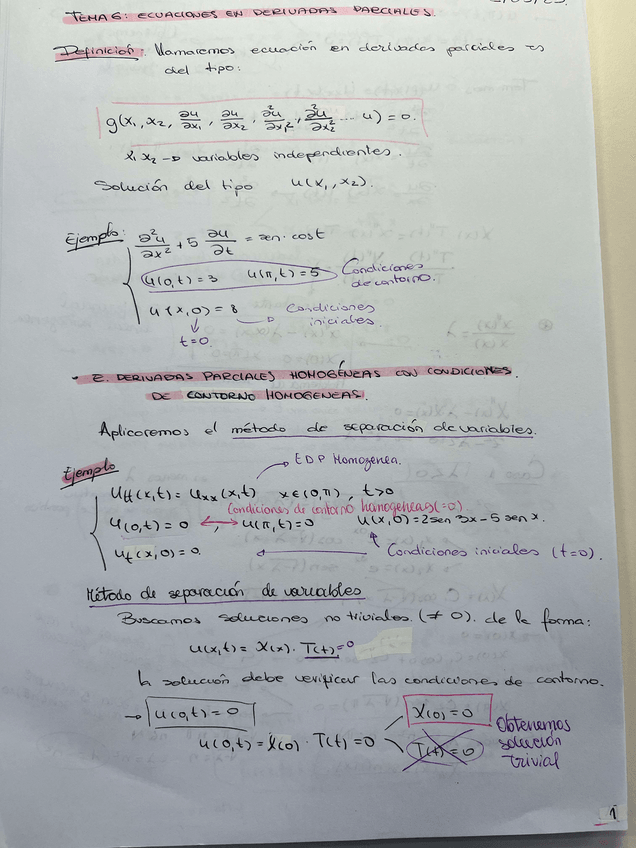 TEMA 6: ECUACIONES EN DERIVADAS PARCIALES.
Definición: Llamaremos ecuación en derivadas parciales es
del tipo:
g(x₁, x₂, ∂u/∂x₁, ∂u/∂x₂, ∂²u/∂x₁², ∂²u/∂x₂² ... u) = 0.
x₁ x₂ → variables independientes.
Solución del tipo u(x₁, x₂).
Ejemplo:
∂²u/∂x² + 5 ∂u/∂t = sen · cost
u(0,t) = 3 u(π,t) = 5 Condiciones
de contorno.
u(x,0) = 8 → Condiciones
iniciales.
t=0.
- 2. DERIVADAS PARCIALES HOMOGÉNEAS CON CONDICIONES
DE CONTORNO HOMOGENEAS.
Aplicaremos el método de separación de variables.
Ejemplo
→ EDP Homogenea.
u_tt(x,t) = u_xx(x,t) x∈(0,π), t>0
Condiciones de contorno homogeneas (=0)
u(0,t) = 0 ↔, u(π,t) = 0 u(x,0) = 2sen 3x - 5 sen x.
u_t(x,0) = 0. ← Condiciones iniciales (t=0).
Método de separación de variables
Buscamos soluciones no triviales (≠ 0). de la forma:
u(x,t) = X(x) · T(t) = 0
la solución debe verificar las condiciones de contorno.
→ u(0,t) = 0
u(0,t) = X(0) · T(t) = 0
X(0) = 0
T(t) = 0
Obtenemos
solución
trivial
1